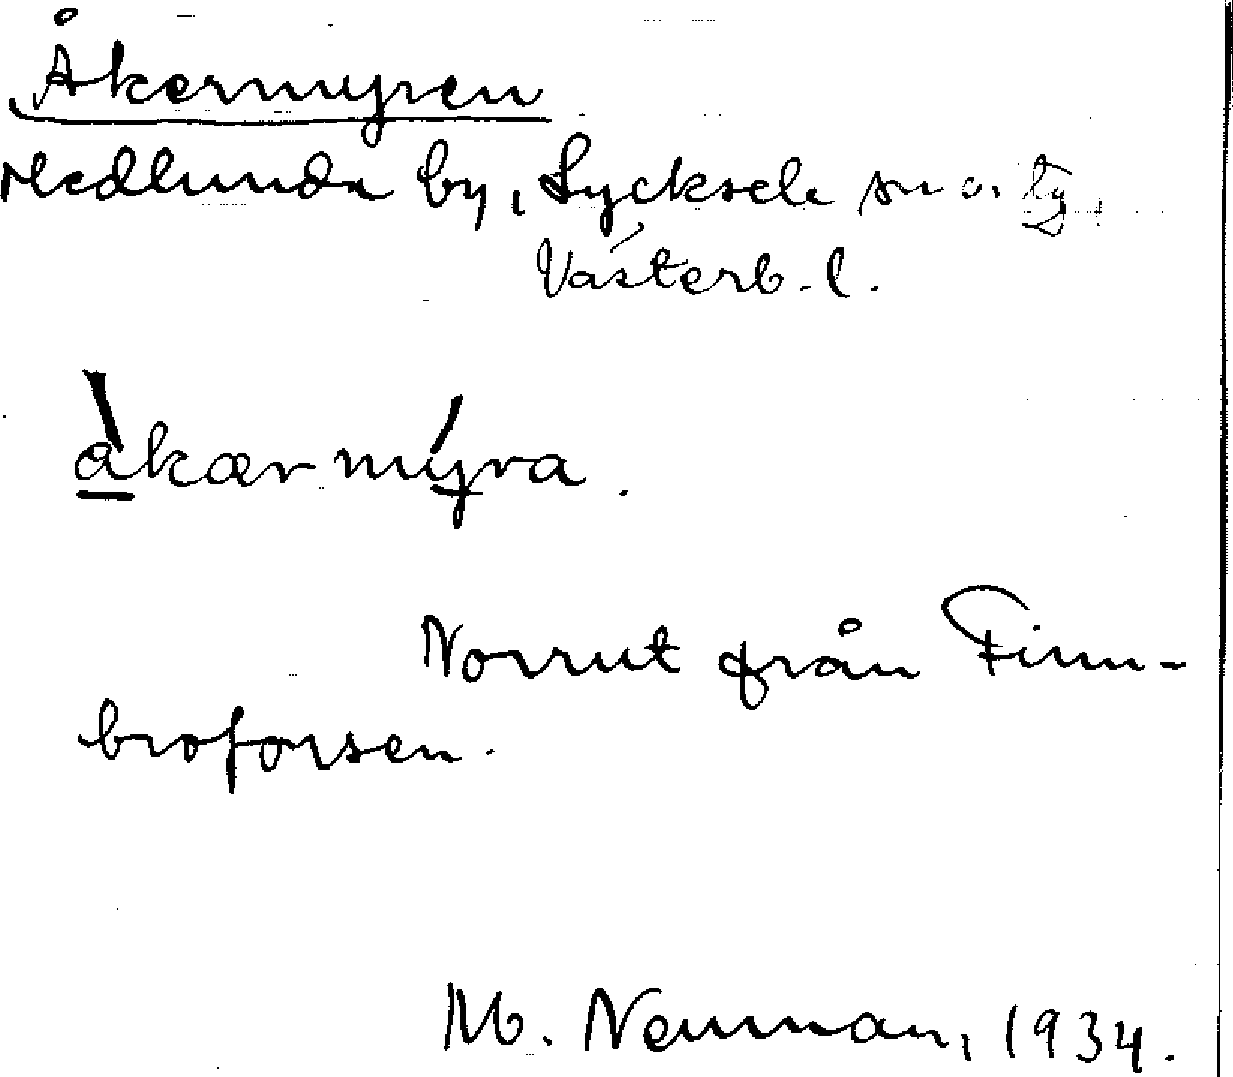 Åkermyren
Hedlunda by, Lycksele sn o. tg
Västerb. l.
åkærmýra.
Norrut från Finn-
broforsen.
M. Neuman, 1934.